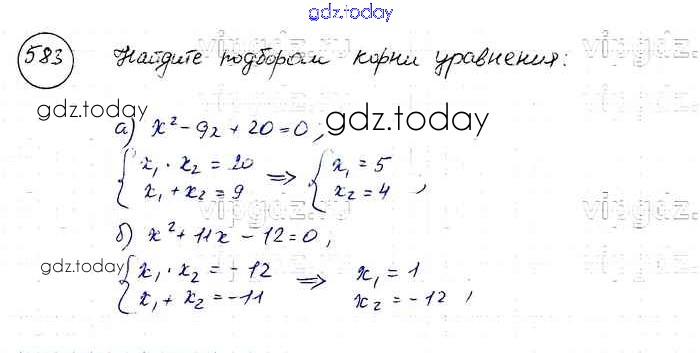 gdz.today
583 Найдите подбором корни уравнения:
vipgdz.ru
gdz.today
а) x² - 9x + 20 = 0; gdz.today
{ x₁ · x₂ = 20 ⇒ { x₁ = 5
x₁ + x₂ = 9 x₂ = 4 ;
vipgdz.ru
б) x² + 11x - 12 = 0;
gdz.today { x₁ · x₂ = -12 ⇒ x₁ = 1
x₁ + x₂ = -11 x₂ = -12 ;